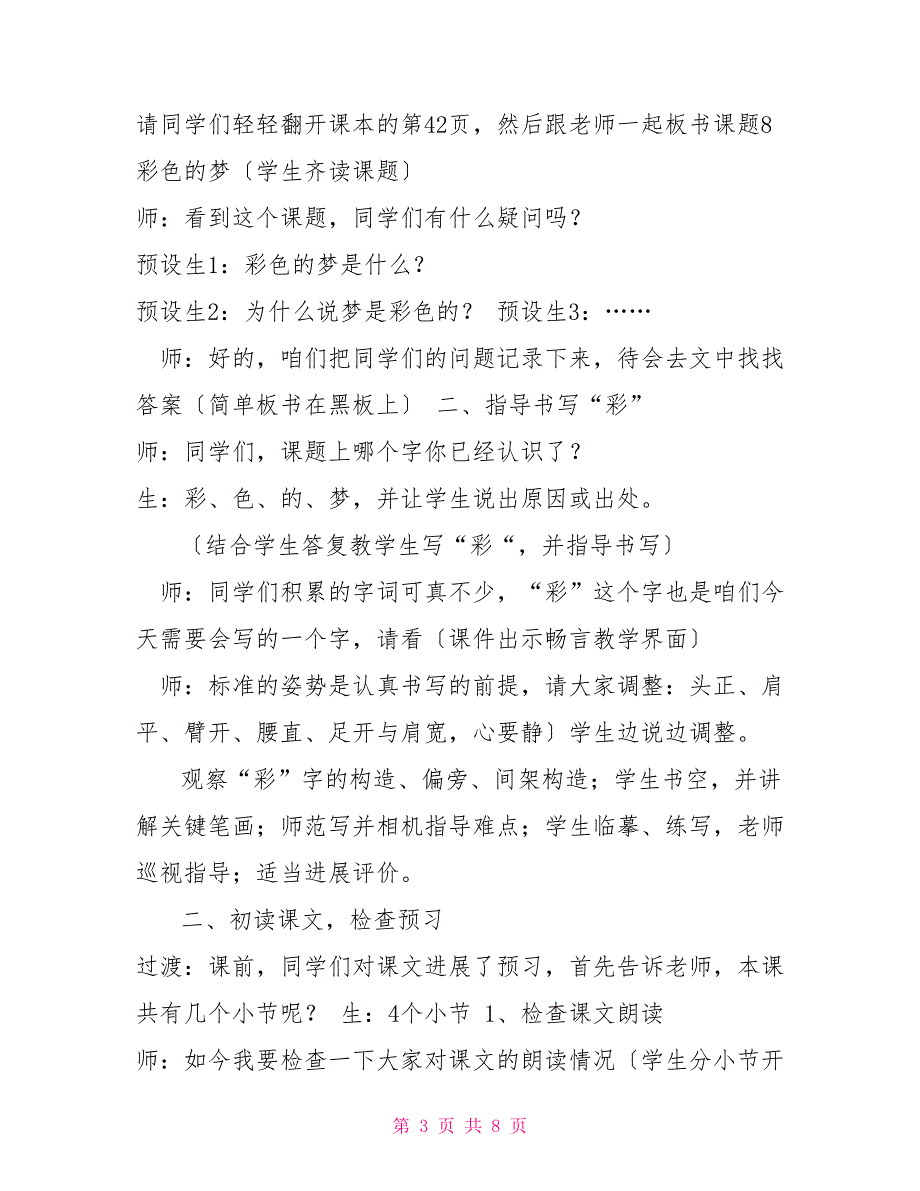 请同学们轻轻翻开课本的第42页，然后跟老师一起板书课题8
彩色的梦〔学生齐读课题〕
师：看到这个课题，同学们有什么疑问吗？
预设生1：彩色的梦是什么？
预设生2：为什么说梦是彩色的？ 预设生3：……
师：好的，咱们把同学们的问题记录下来，待会去文中找找
答案〔简单板书在黑板上〕 二、指导书写“彩”
师：同学们，课题上哪个字你已经认识了？
生：彩、色、的、梦，并让学生说出原因或出处。
〔结合学生答复教学生写“彩“，并指导书写〕
师：同学们积累的字词可真不少，“彩”这个字也是咱们今
天需要会写的一个字，请看〔课件出示畅言教学界面〕
师：标准的姿势是认真书写的前提，请大家调整：头正、肩
平、臂开、腰直、足开与肩宽，心要静〕学生边说边调整。
观察“彩”字的构造、偏旁、间架构造；学生书空，并讲
解关键笔画；师范写并相机指导难点；学生临摹、练写，老师
巡视指导；适当进展评价。
二、初读课文，检查预习
过渡：课前，同学们对课文进展了预习，首先告诉老师，本课
共有几个小节呢？ 生：4个小节 1、检查课文朗读
师：如今我要检查一下大家对课文的朗读情况〔学生分小节开
第 3 页 共 8 页